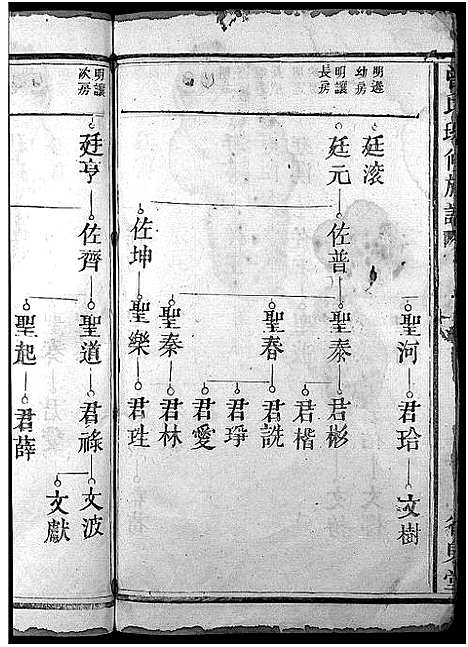 明遜幼房
明讓長房
廷滚
廷元
佐普
佐坤
聖河
聖泰
聖春
聖秦
聖樂
君玲
君彬
君楷
君詵
君琤
君愛
君林
君珄
文樹
明讓次房
廷亨
佐齊
聖道
聖起
君祿
君薛
文波
文獻